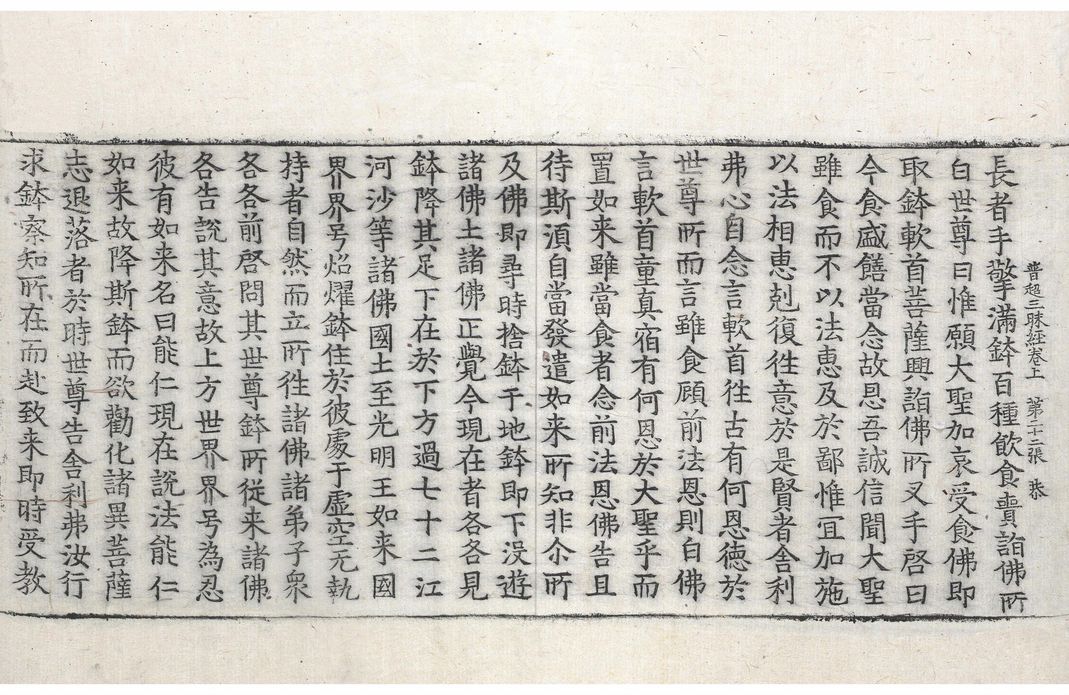 普超三昧経卷上 第二十二張 恭
長者手擎滿鉢百種飲食賷詣佛所
白世尊曰惟願大聖加哀受食佛即
取鉢軟首菩薩興詣佛所叉手啓曰
今食盛饍當念故恩吾誠信聞大聖
雖食而不以法惠及於鄙惟冝加施
以法相惠剋復徃意於是賢者舎利
弗心自念言軟首徃古有何恩德於
世尊所而言雖食顧前法恩則白佛
言軟首童真宿有何恩於大聖乎而
置如来雖當食者念前法恩佛告且
待斯湏自當發遣如来所知非尒所
及佛即尋時捨鉢于地鉢即下没遊
諸佛土諸佛正覺今現在者各各見
鉢降其足下在於下方過七十二江
河沙等諸佛國土至光明王如来國
界界号焰燿鉢住於彼處于虚空无執
持者自然而立所徃諸佛諸弟子衆
各各前啓問其世尊鉢所従来諸佛
各告說其意故上方世界界号為忍
彼有如来名曰能仁現在說法能仁
如来故降斯鉢而欲勸化諸異菩薩
志退落者於時世尊告舎利弗汝行
求鉢察知所在而赴致来即時受教